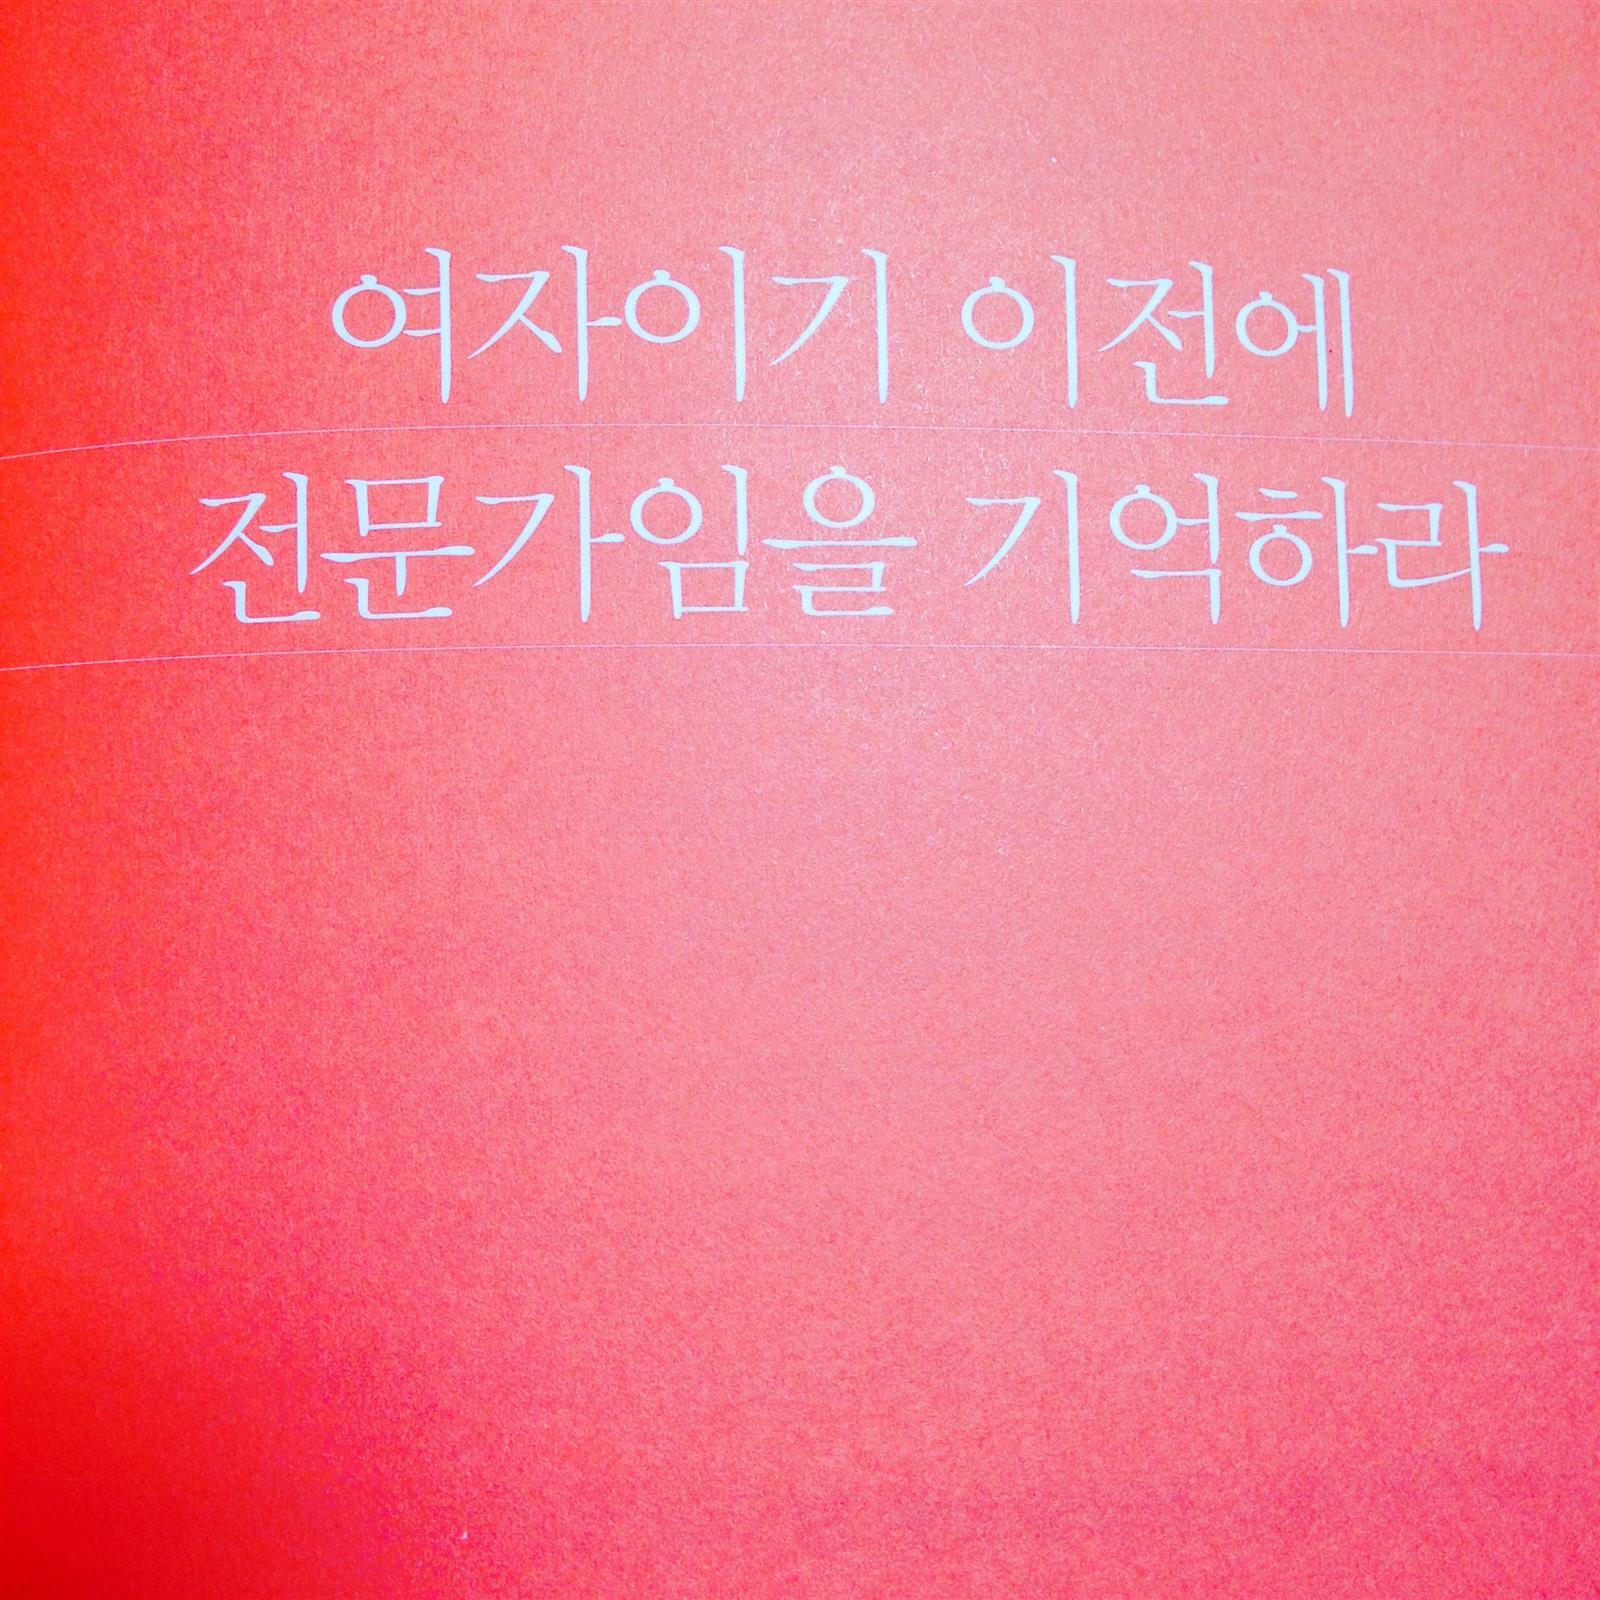 여자이기 이전에
전문가임을 기억하라